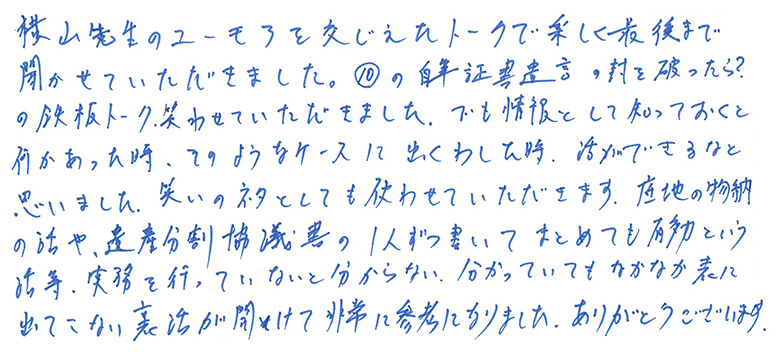 横山先生のユーモアを交じえたトークで楽しく最後まで
聞かせていただきました。⑩の自筆証書遺言の封を破ったら?
の鉄板トーク、笑わせていただきました。でも情報として知っておくと
何かあった時、そのようなケースに出くわした時、活かできるなと
思いました。笑いのネタとしても使わせていただきます。底地の物納
の話や、遺産分割協議書の1人ずつ書いてまとめても有効という
話等、実務を行っていないと分からない、分かっていてもなかなか表に
出てこない裏話が聞けて非常に参考になりました。ありがとうございます。